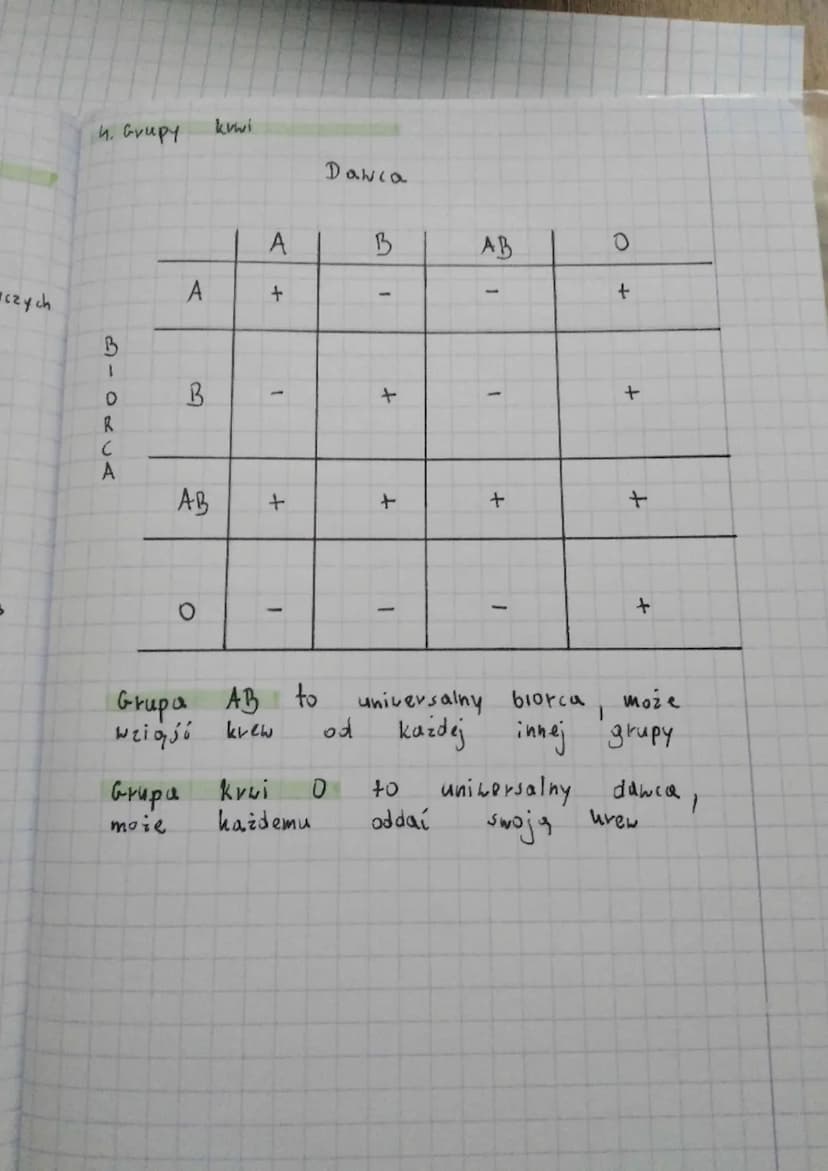 4. Grupy krwi
Dawca
A B AB O
A + - - +
iczych
B - + - +
BIORCA
AB + + + +
O - - - +
Grupa AB to uniwersalny biorca, może
wziąść krew od każdej innej grupy
Grupa krwi O to uniwersalny dawca,
może każdemu oddać swoją krew